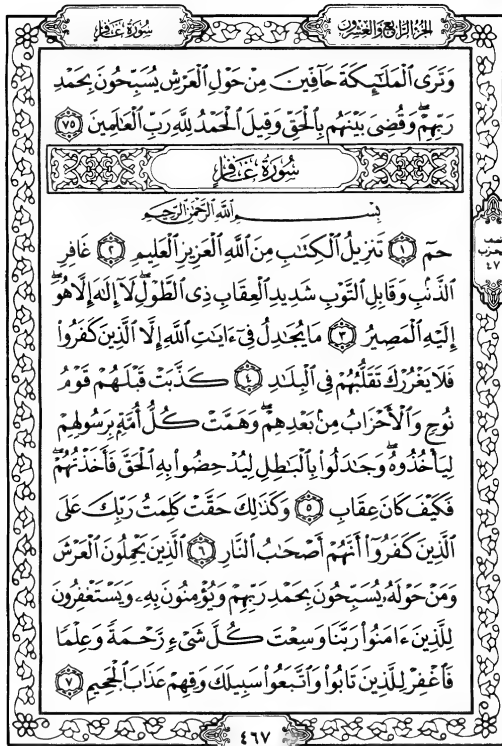 سُورَةُ غَافِرٍ
الجُزْءُ الرَّابِعُ وَالعِشْرُونَ
وَتَرَى ٱلْمَلَٰٓئِكَةَ حَآفِّينَ مِنْ حَوْلِ ٱلْعَرْشِ يُسَبِّحُونَ بِحَمْدِ
رَبِّهِمْۖ وَقُضِىَ بَيْنَهُم بِٱلْحَقِّ وَقِيلَ ٱلْحَمْدُ لِلَّهِ رَبِّ ٱلْعَٰلَمِينَ ٧٥
سُورَةُ غَافِرٍ
بِسْمِ ٱللَّهِ ٱلرَّحْمَٰنِ ٱلرَّحِيمِ
حمٓ ١ تَنزِيلُ ٱلْكِتَٰبِ مِنَ ٱللَّهِ ٱلْعَزِيزِ ٱلْعَلِيمِ ٢ غَافِرِ
ٱلذَّنۢبِ وَقَابِلِ ٱلتَّوْبِ شَدِيدِ ٱلْعِقَابِ ذِى ٱلطَّوْلِۖ لَآ إِلَٰهَ إِلَّا هُوَۖ
إِلَيْهِ ٱلْمَصِيرُ ٣ مَا يُجَٰدِلُ فِىٓ ءَايَٰتِ ٱللَّهِ إِلَّا ٱلَّذِينَ كَفَرُوا۟
فَلَا يَغْرُرْكَ تَقَلُّبُهُمْ فِى ٱلْبِلَٰدِ ٤ كَذَّبَتْ قَبْلَهُمْ قَوْمُ
نُوحٍ وَٱلْأَحْزَابُ مِنۢ بَعْدِهِمْۖ وَهَمَّتْ كُلُّ أُمَّةٍۭ بِرَسُولِهِمْ
لِيَأْخُذُوهُۖ وَجَٰدَلُوا۟ بِٱلْبَٰطِلِ لِيُدْحِضُوا۟ بِهِ ٱلْحَقَّ فَأَخَذْتُهُمْۖ
فَكَيْفَ كَانَ عِقَابِ ٥ وَكَذَٰلِكَ حَقَّتْ كَلِمَتُ رَبِّكَ عَلَى
ٱلَّذِينَ كَفَرُوٓا۟ أَنَّهُمْ أَصْحَٰبُ ٱلنَّارِ ٦ ٱلَّذِينَ يَحْمِلُونَ ٱلْعَرْشَ
وَمَنْ حَوْلَهُۥ يُسَبِّحُونَ بِحَمْدِ رَبِّهِمْ وَيُؤْمِنُونَ بِهِۦ وَيَسْتَغْفِرُونَ
لِلَّذِينَ ءَامَنُوا۟ رَبَّنَا وَسِعْتَ كُلَّ شَىْءٍ رَّحْمَةً وَعِلْمًا
فَٱغْفِرْ لِلَّذِينَ تَابُوا۟ وَٱتَّبَعُوا۟ سَبِيلَكَ وَقِهِمْ عَذَابَ ٱلْجَحِيمِ ٧
٤٦٧